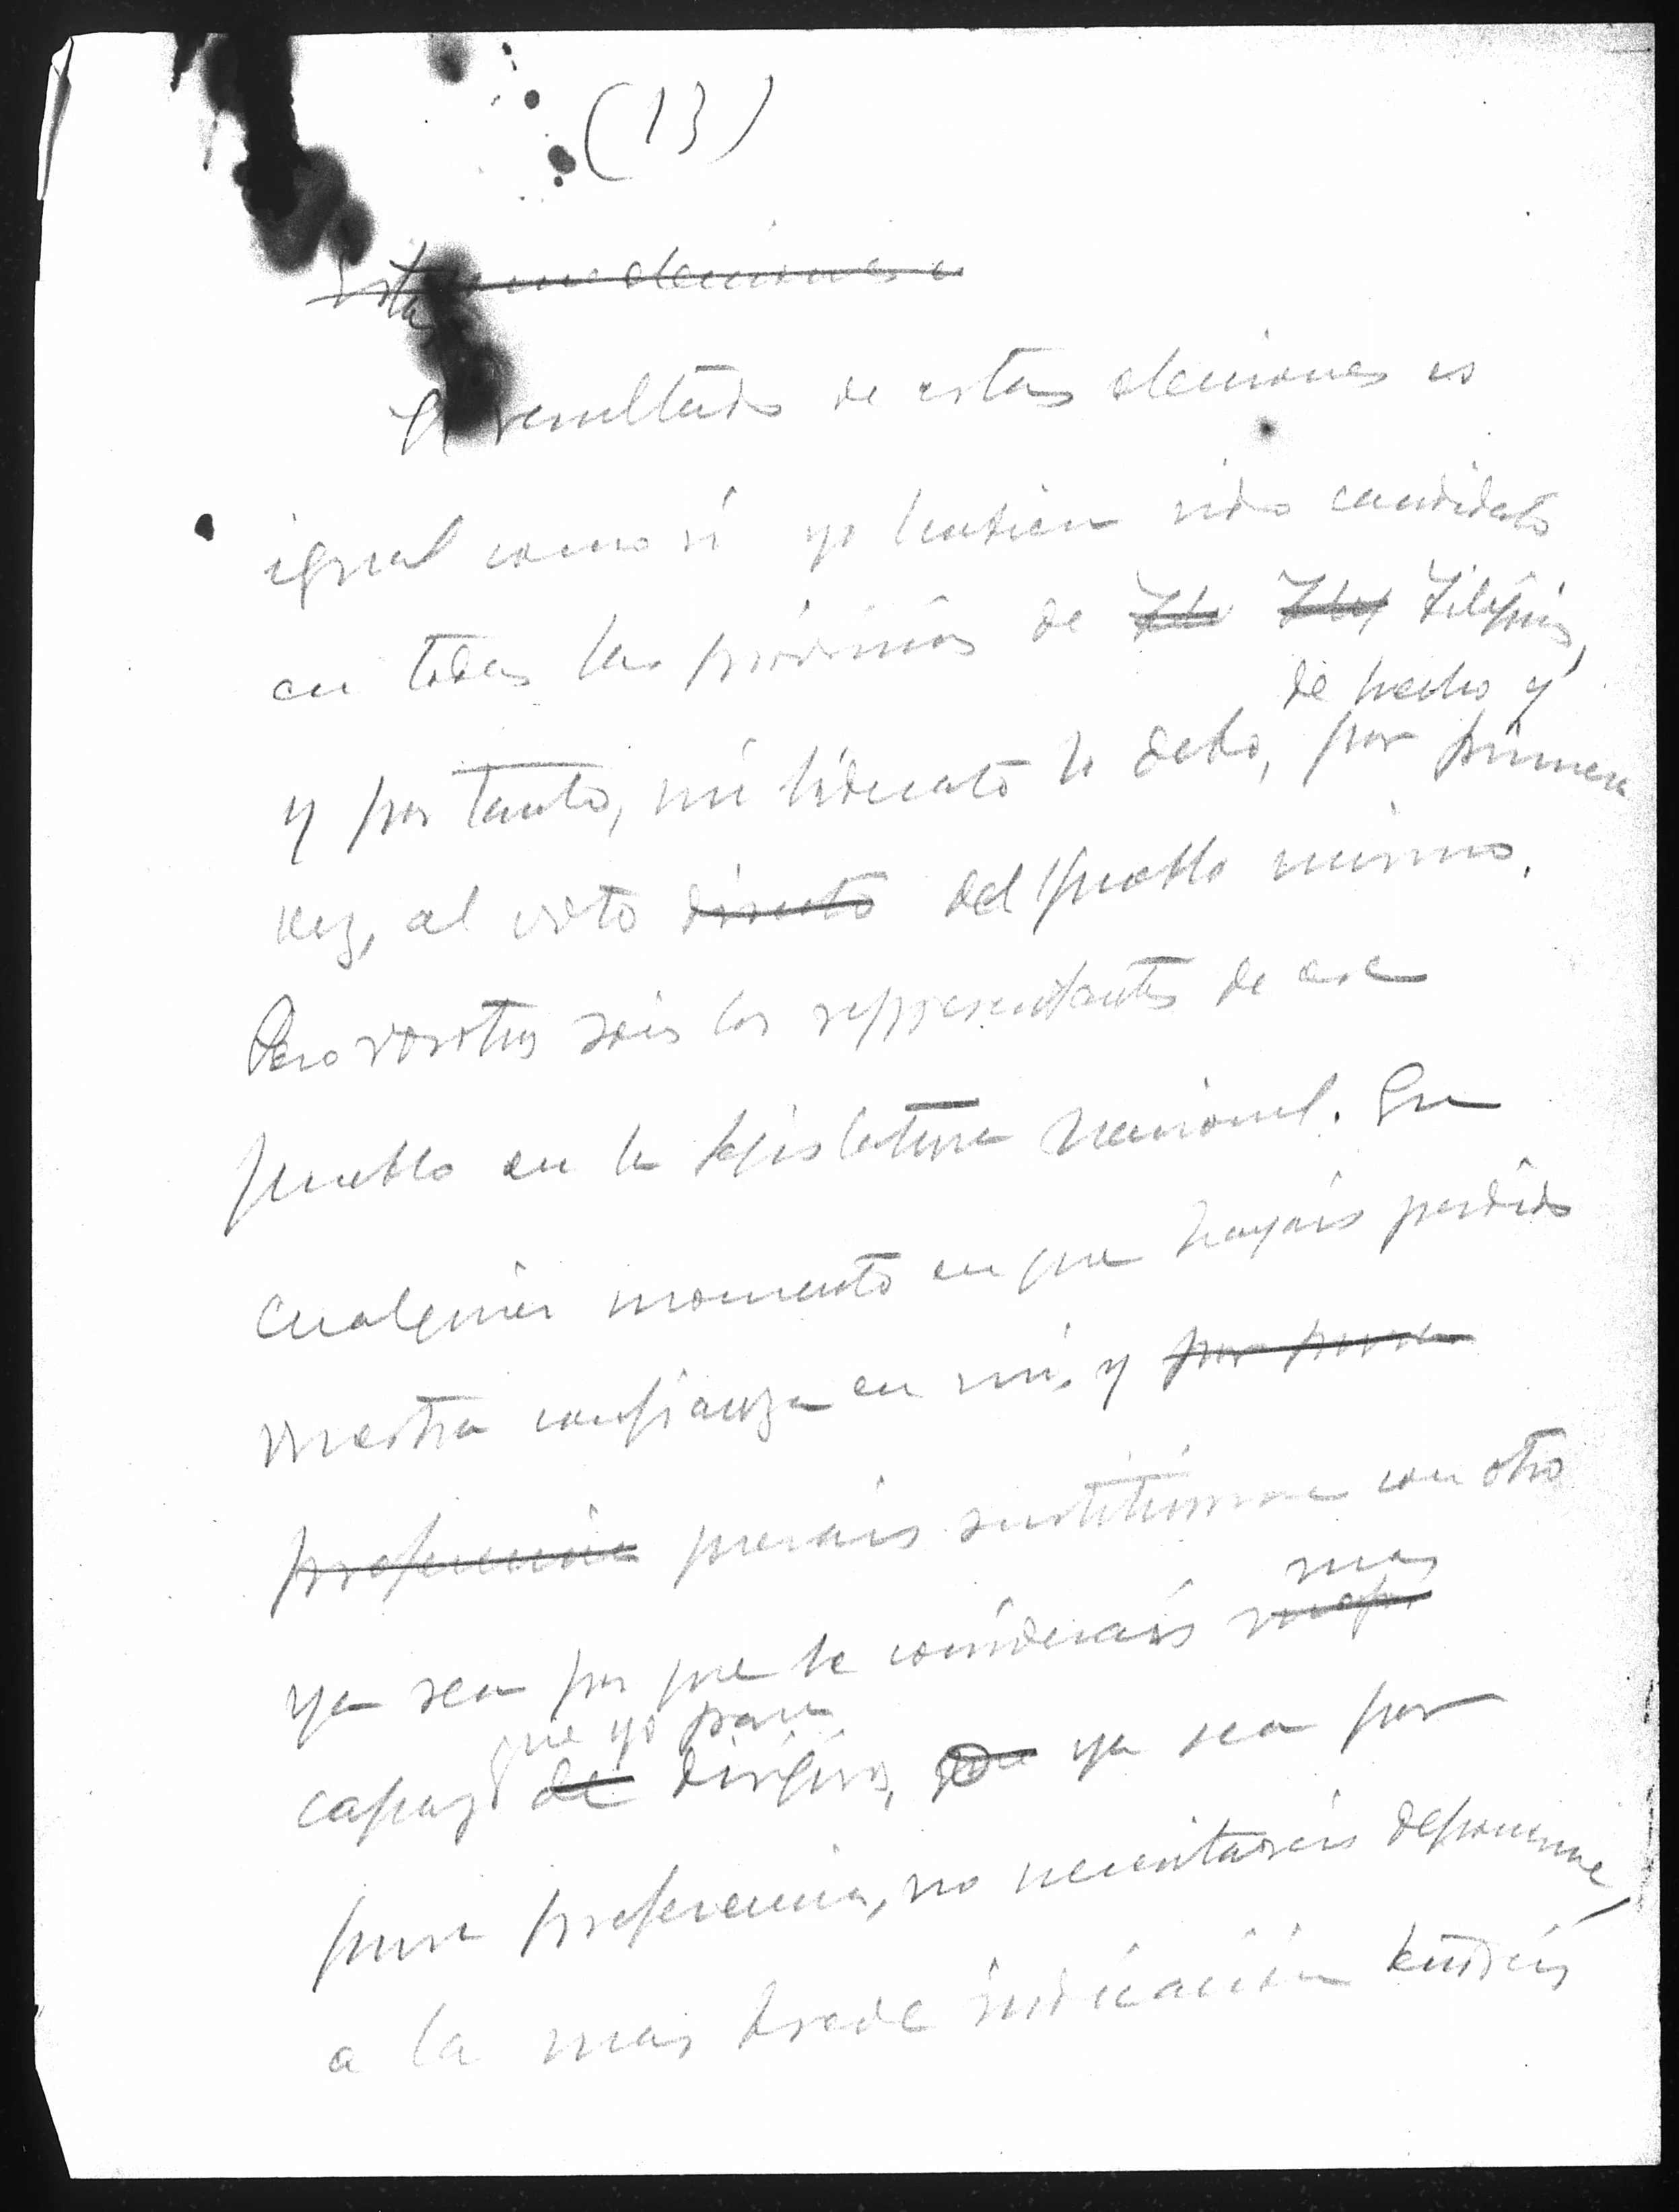 (13)
Estas elecciones
El resultado de estas elecciones es
igual como si yo hubiera sido candidato
en todas las provincias de Filipinas,
de hecho y
y por tanto, mi liderato lo debo, por primera
vez, al voto directo del pueblo mismo.
Pero vosotros sois los representantes de ese
pueblo en la legislatura nacional. En
cualquier momento en que hayais perdido
vuestra confianza en mi, y por pura
preferencia querais sustituirme con otro
mas
ya sea por que le considerais
que yo para
capaz de dirigiros, ya sea por
pura preferencia, no necesitareis deponerme,
a la mas breve indicación tendreis